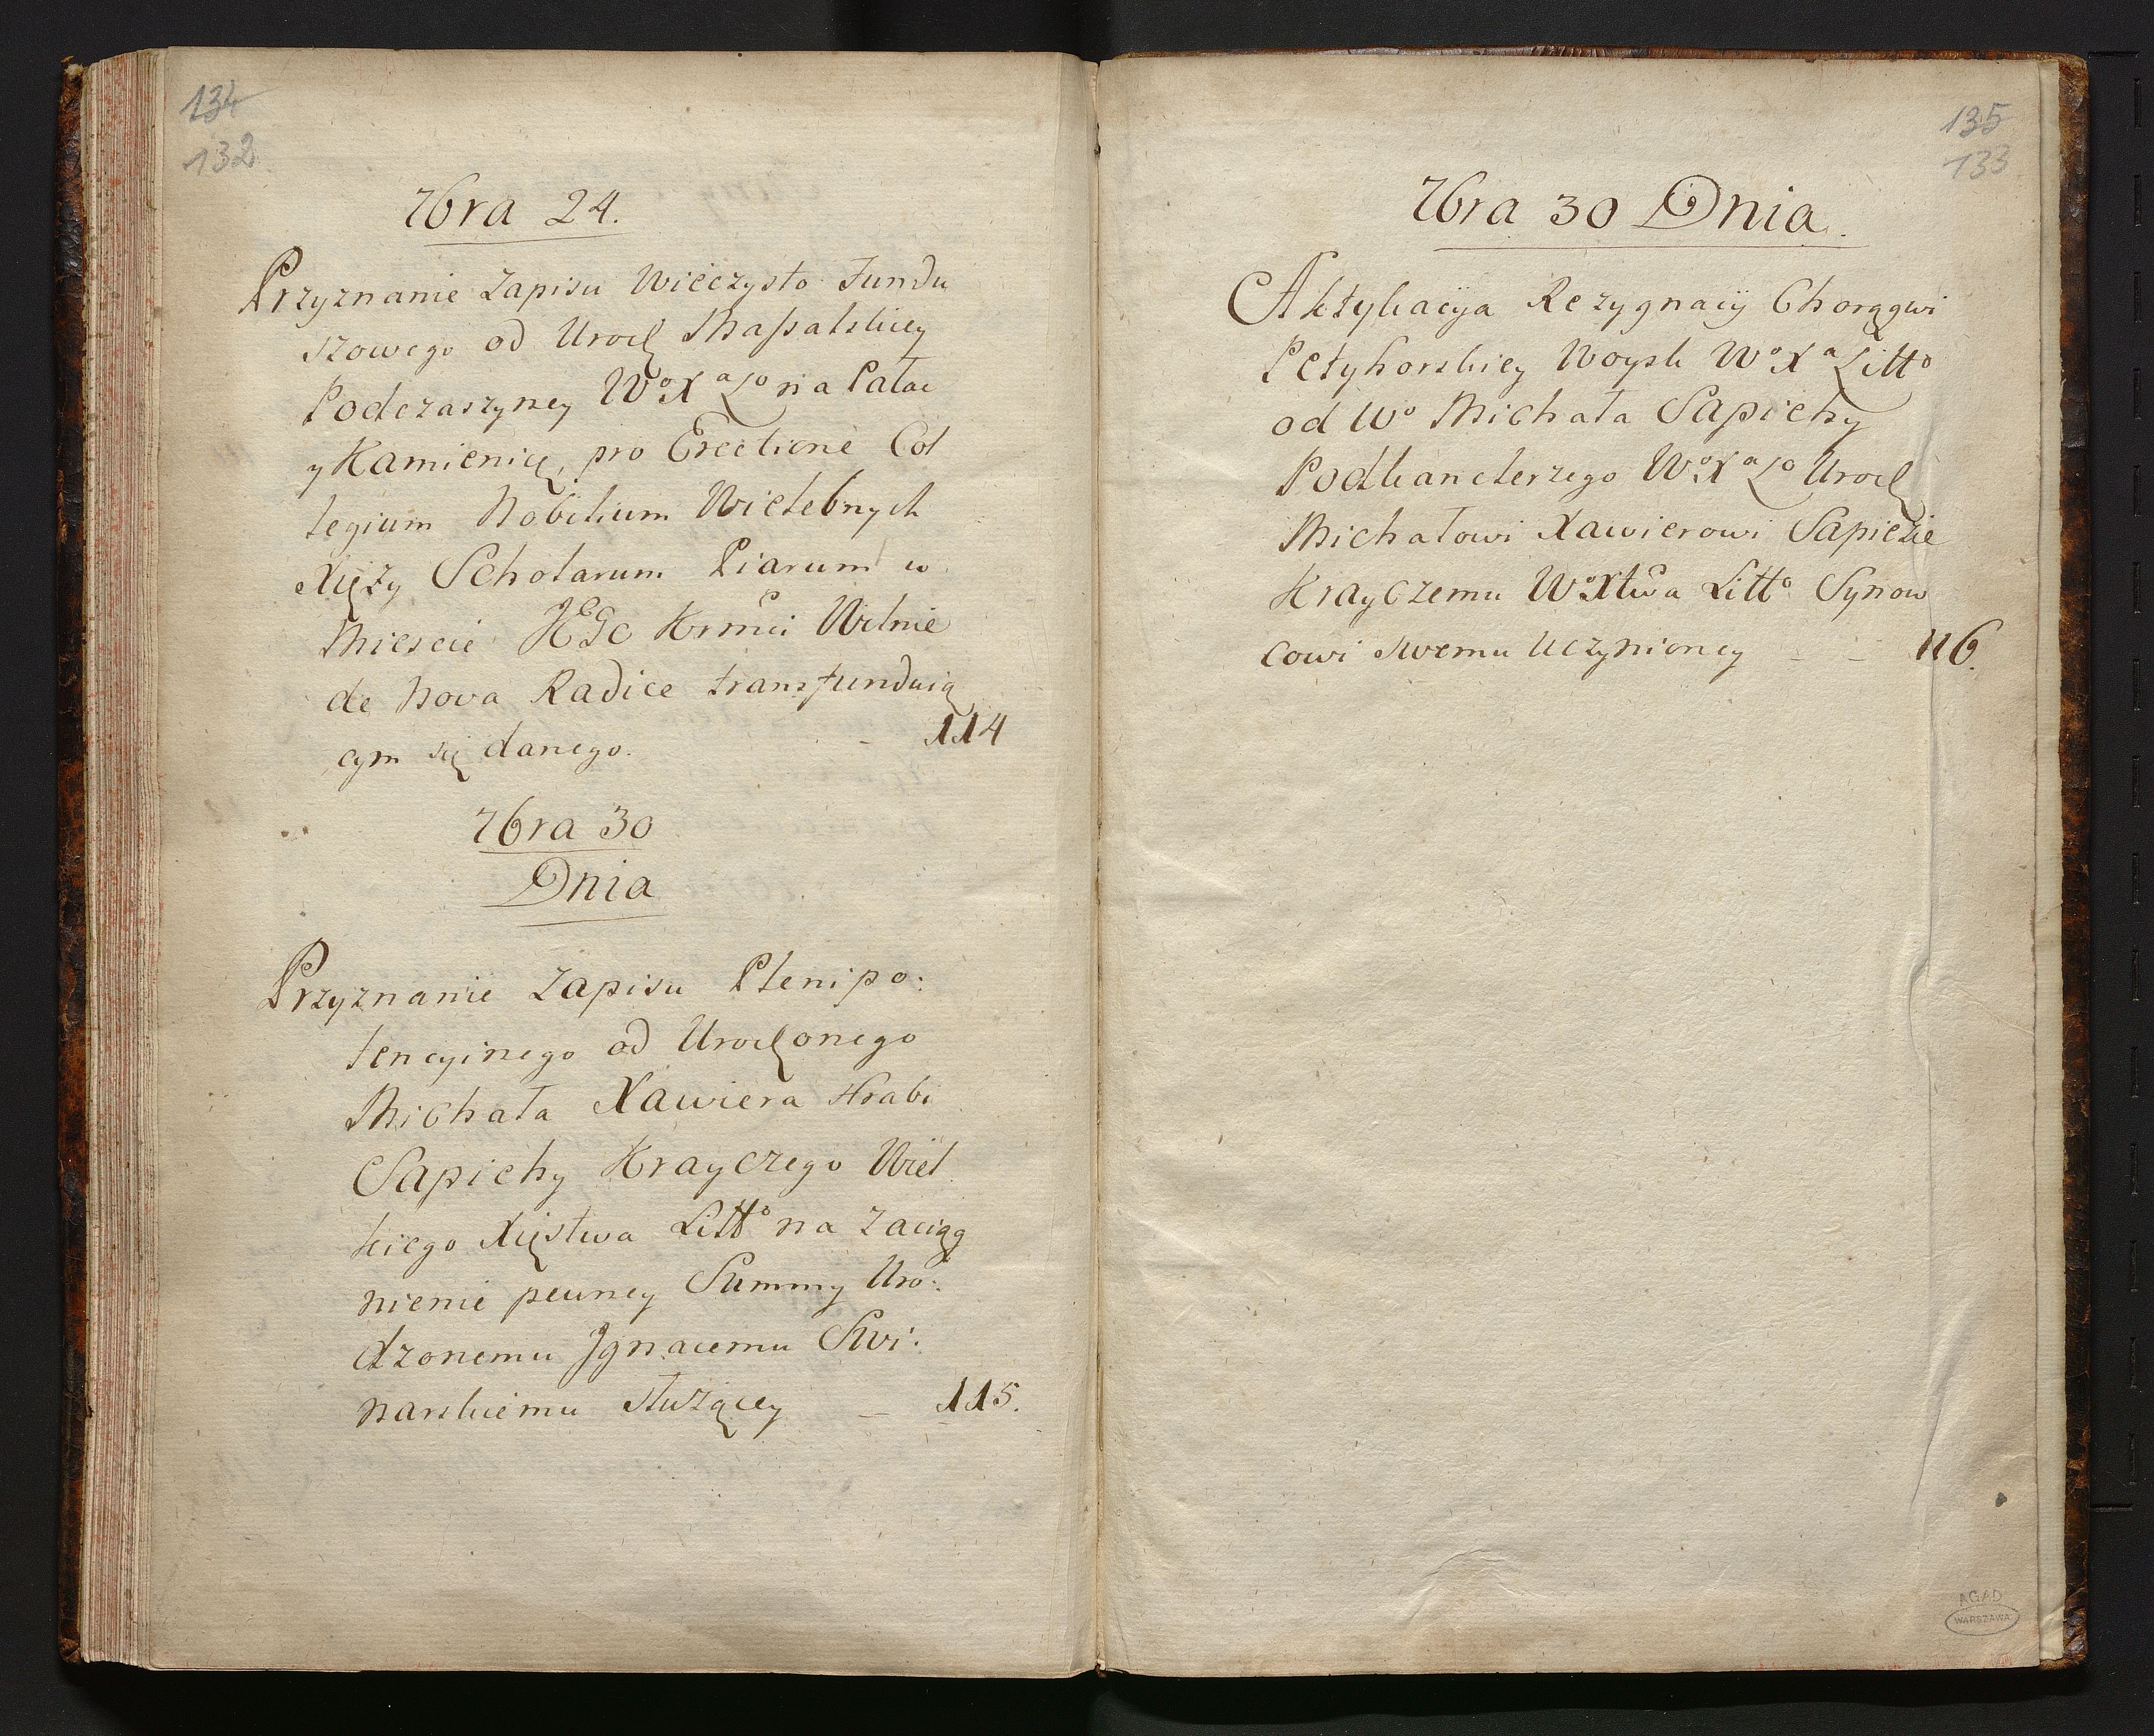 134
132
7bra 24.
Przyznanie Zapisu Wieczysto Fundu
szowego od Urodz Massalskiey
Podczaszyney Wo Xa Lo na Pałac
y Kamienicę, pro Erectione Col
legium Nobilium Wielebnych
Xięży Scholarum Piarum w
Miescie JEGo Krmći Wilnie
de Nova Radice transfunduią
cym się danego. - 114
7bra 30
Dnia
Przyznanie Zapisu Plenipo:
tencyinego od Urodzonego
Michała Xawiera Hrabi
Sapiehy Krayczego Wiel
kiego Xięstwa Litto na Zaciąg
nienie pewney Summy Uro:
dzonemu Jgnacemu Swi:
narskiemu służącey - 115.
135
133
7bra 30 Dnia.
Aktykacyja Rezygnacij Chorągwi
Petyhorskiey Woysk Wo Xa Litto
od Wo Michała Sapiehy
Podkanclerzego Wo Xa Lo Urodz
Michałowi Xawierowi Sapieźie
Krayczemu Wo Xtwa Litto Synow
cowi swemu uczynioney - - 116.
AGAD
WARSZAWA